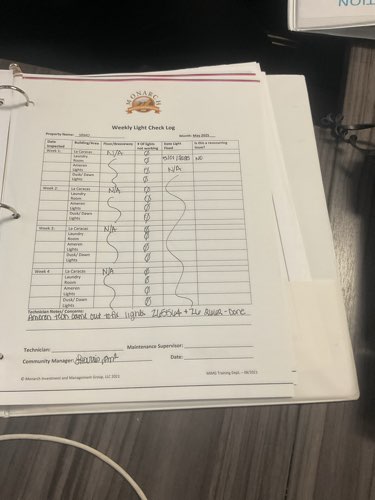 MONARCH
Weekly Light Check Log
Property Name: MIMG Month: May 2025
Date Inspected Building/Area Floor/Breezeway # Of lights not working Date Light Fixed Is this a reoccurring issue?
Week 1: La Caracas N/A Ø
Laundry Room Ø NO
Ameren Lights Ø N/A
Dusk/ Dawn Lights Ø
Week 2: La Caracas N/A Ø
Laundry Room Ø
Ameren Lights Ø
Dusk/ Dawn Lights Ø
Week 3: La Caracas N/A Ø
Laundry Room Ø
Ameren Lights Ø
Dusk/ Dawn Lights Ø
Week 4 La Caracas N/A Ø
Laundry Room Ø
Ameren Lights Ø
Dusk/ Dawn Lights Ø
Technician Notes/ Concerns:
Ameren tech came out to fix lights - Done
Technician: Maintenance Supervisor:
Community Manager: Date:
© Monarch Investment and Management Group, LLC 2021 MIMG Training Dept. – 08/2021